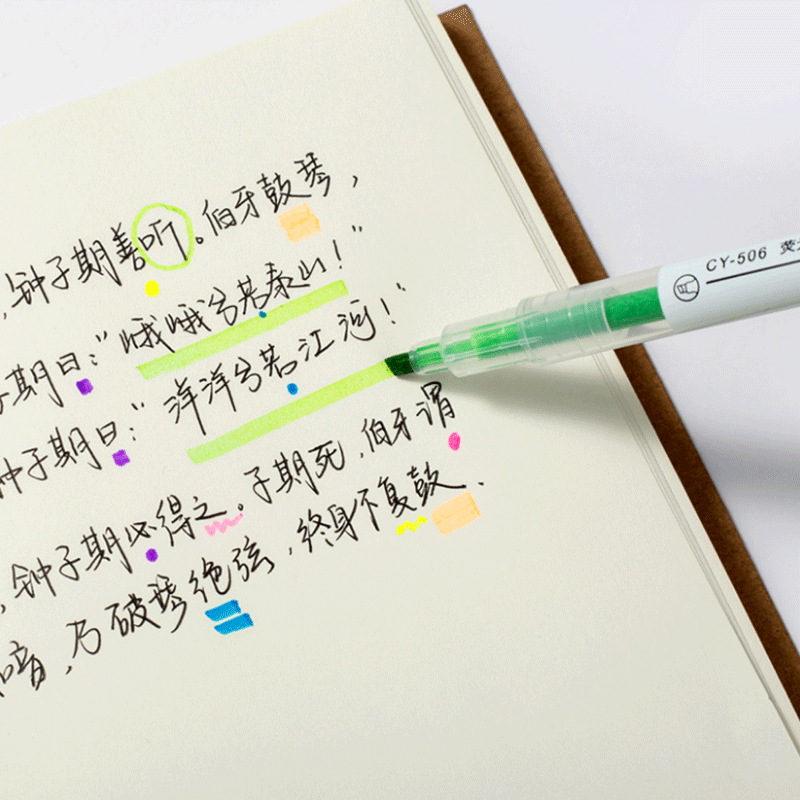 ，钟子期善听。伯牙鼓琴，
子期曰：“峨峨兮若泰山！”
钟子期曰：“洋洋兮若江河！”
，钟子期必得之。子期死，伯牙谓
知音，乃破琴绝弦，终身不复鼓.
CY-506 荧